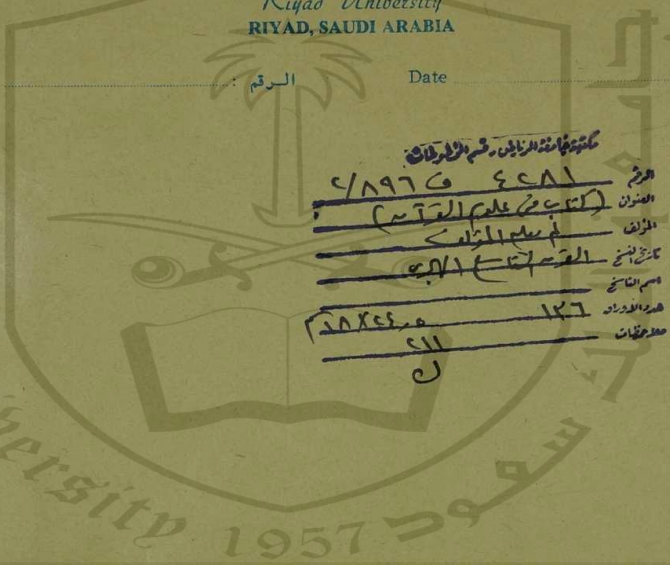 Riyad University
RIYAD, SAUDI ARABIA
الرقم :
Date
مكتبة جامعة الرياض - قسم المخطوطات
الرقم ٤٢٨١ ف ٢/٨٩٦
العنوان (كتاب في علوم القرآن)
المؤلف لم يعلم المؤلف
تاريخ النسخ القرن التاسع الهجري
اسم الناسخ
عدد الأوراق ١٣٦ ٢٤٫٥X١٨م
ملاحظات ٢١١
ك
جامعة
سعود
ersity 1957